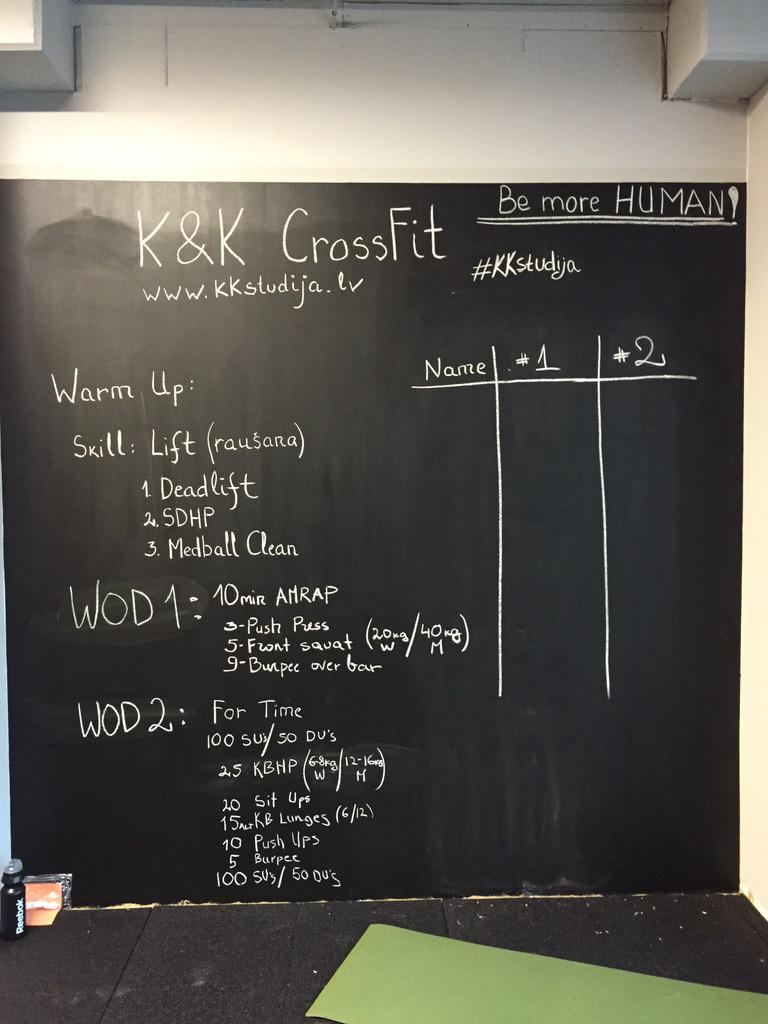 Be more HUMAN!
K&K CrossFit
#KKstudija
www.kkstudija.lv
Name #1 #2
Warm Up:
Skill: Lift (raušana)
1. Deadlift
2. SDHP
3. Medball Clean
WOD 1: 10min AMRAP
3-Push Press
5-Front squat (20kg W/40kg M)
9-Burpee over bar
WOD 2: For Time
100 SU's/50 DU's
25 KBHP (6-8kg W/12-16kg M)
20 Sit Ups
15 ALT KB Lunges (6/12)
10 Push Ups
5 Burpee
100 SU's/50 DU's
Reebok